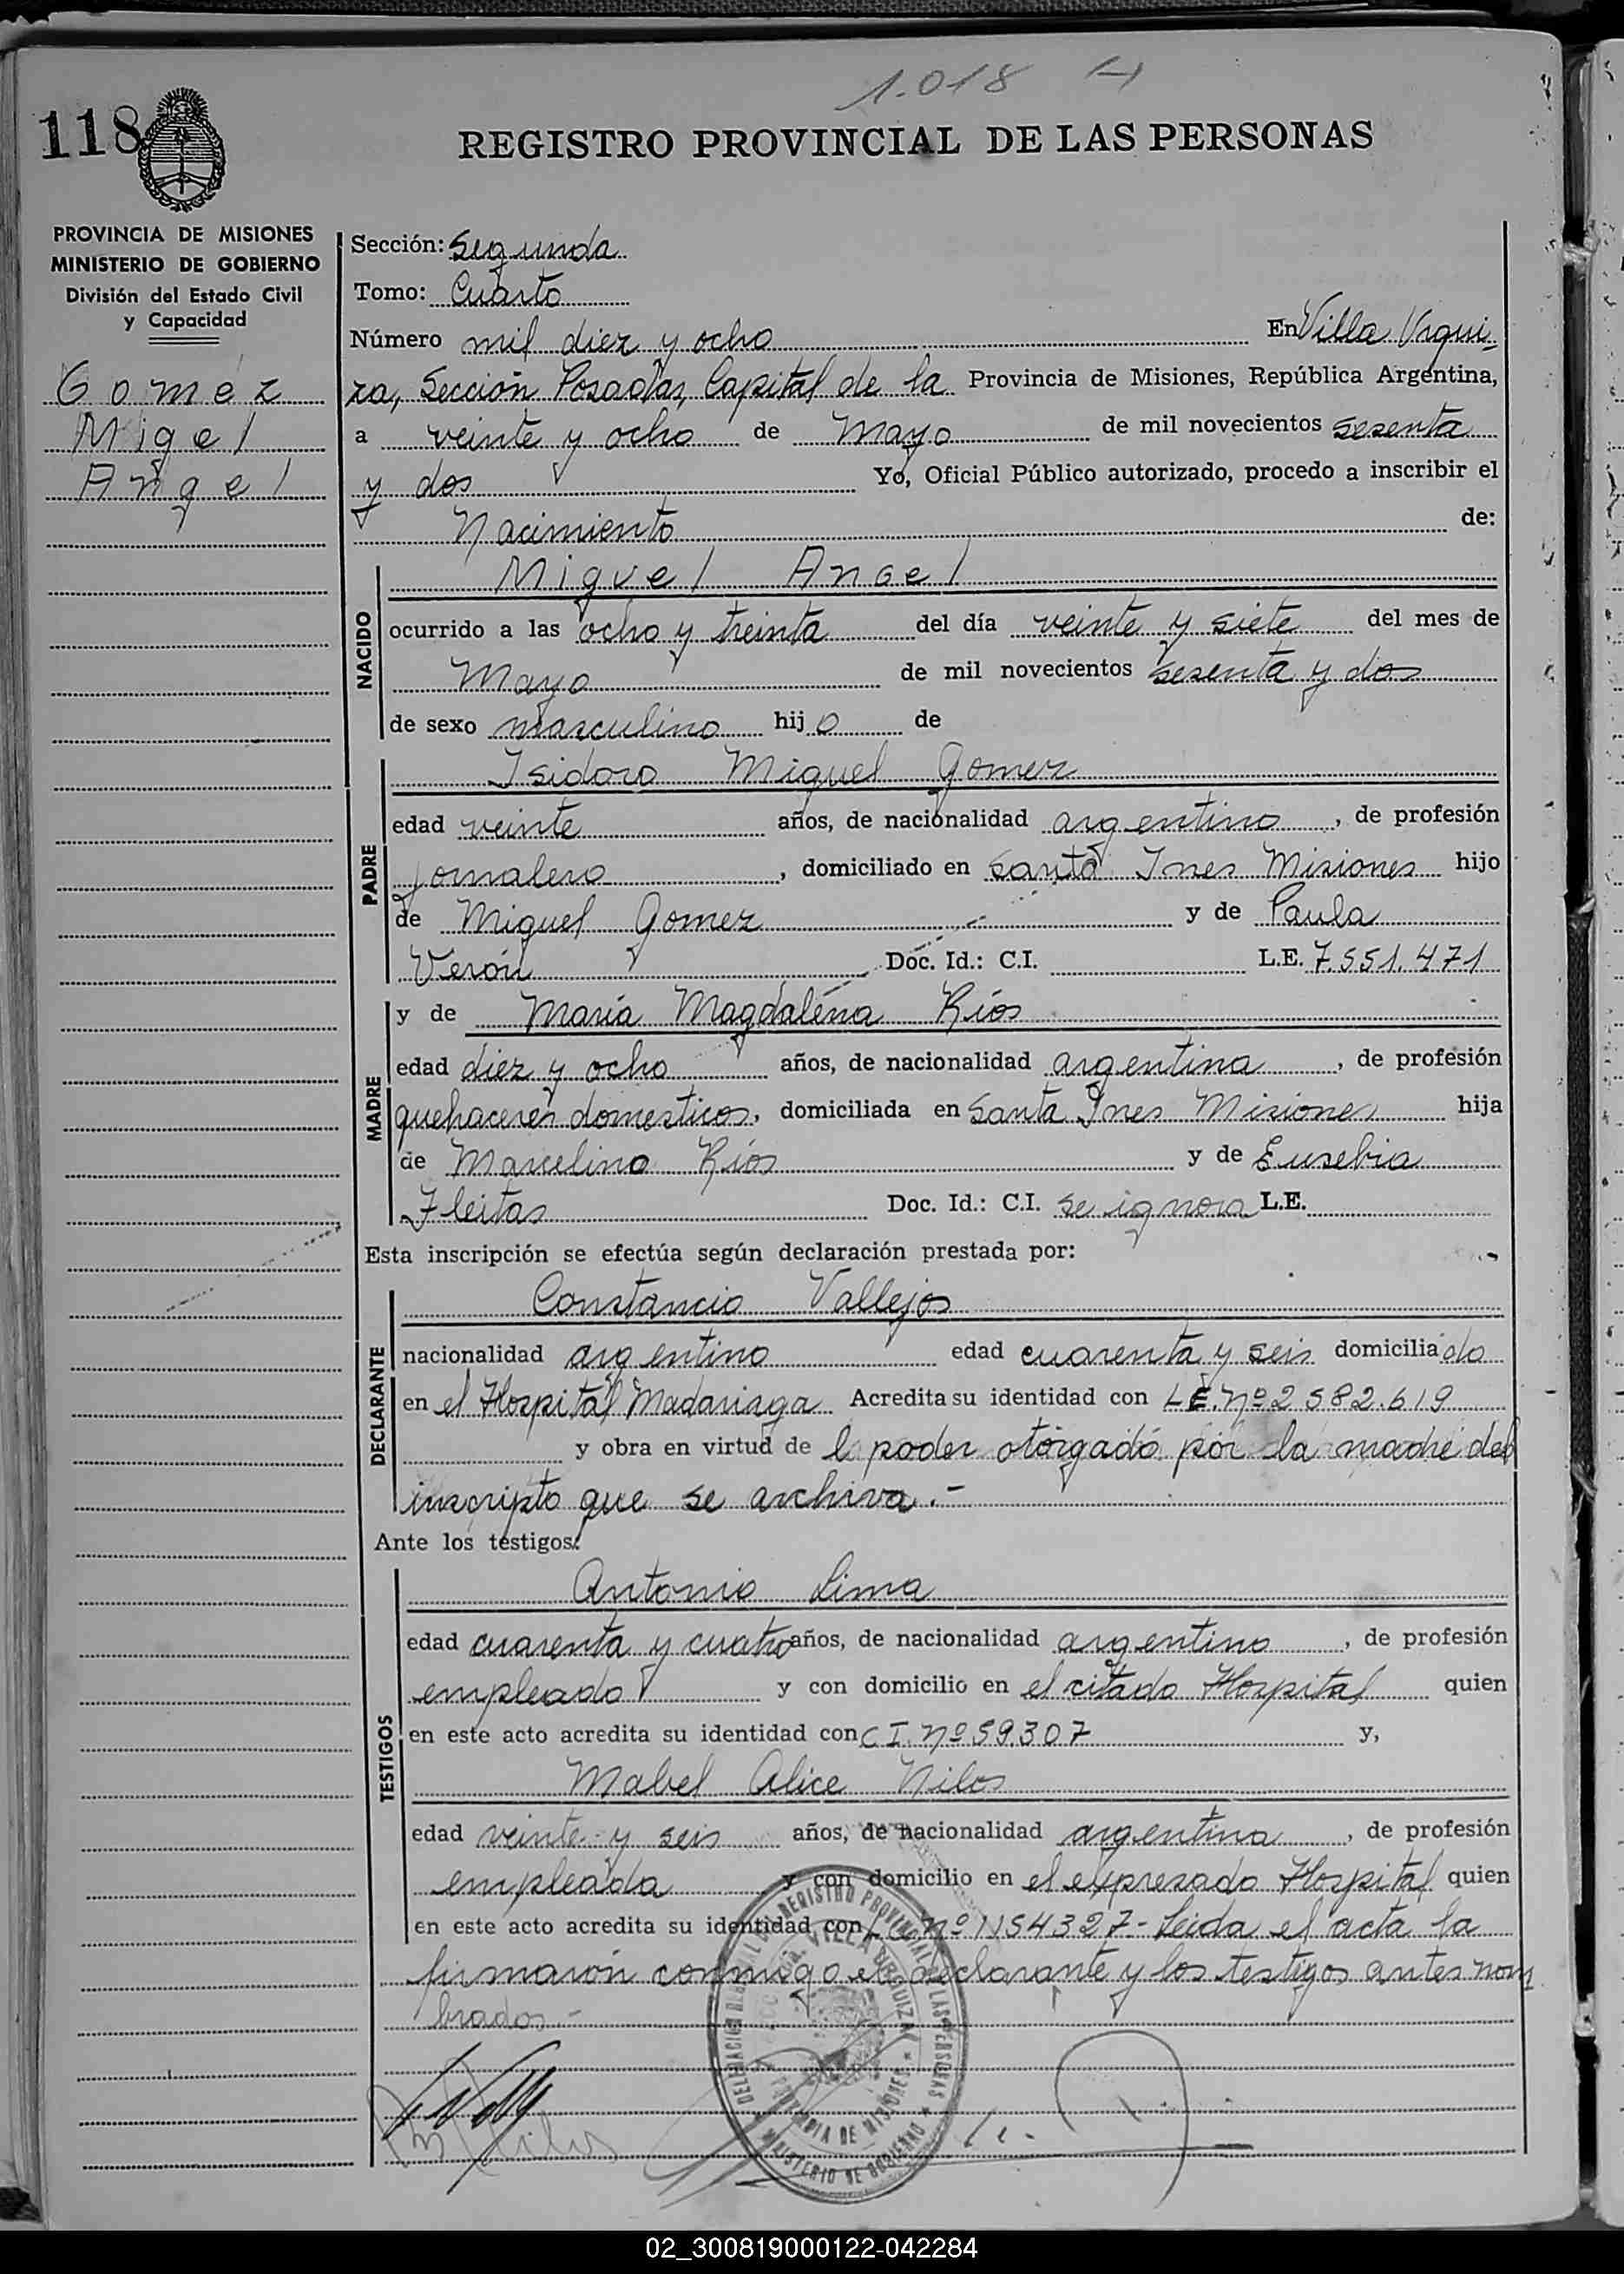 1.018
118
REGISTRO PROVINCIAL DE LAS PERSONAS
PROVINCIA DE MISIONES
MINISTERIO DE GOBIERNO
División del Estado Civil
y Capacidad
Gomez
Migel
Angel
Sección: Segunda
Tomo: Cuarto
Número mil diez y ocho En Villa Urqui-
za, Sección Posadas, Capital de la Provincia de Misiones, República Argentina,
a veinte y ocho de Mayo de mil novecientos sesenta
y dos Yo, Oficial Público autorizado, procedo a inscribir el
Nacimiento de:
NACIDO
Miguel Angel
ocurrido a las ocho y treinta del día veinte y siete del mes de
Mayo de mil novecientos sesenta y dos
de sexo masculino hijo de
PADRE
Isidoro Miguel Gomez
edad veinte años, de nacionalidad argentino, de profesión
jornalero, domiciliado en Santa Ines Misiones hijo
de Miguel Gomez y de Paula
Verón Doc. Id.: C.I. L.E. 7.551.471
MADRE
y de María Magdalena Ríos
edad diez y ocho años, de nacionalidad argentina, de profesión
quehaceres domesticos, domiciliada en Santa Ines Misiones hija
de Marcelino Ríos y de Eusebia
Fleitas Doc. Id.: C.I. se ignora L.E.
Esta inscripción se efectúa según declaración prestada por:
DECLARANTE
Constancio Vallejos
nacionalidad argentino edad cuarenta y seis domiciliado
en el Hospital Madariaga Acredita su identidad con L.E. Nº 2582.619
y obra en virtud de l poder otorgado por la madre del
inscripto que se archiva.-
Ante los testigos:
TESTIGOS
Antonio Lima
edad cuarenta y cuatro años, de nacionalidad argentino, de profesión
empleado y con domicilio en el citado Hospital quien
en este acto acredita su identidad con C I. Nº 59.307 y,
Mabel Alice Nilos
edad veinte y seis años, de nacionalidad argentina, de profesión
empleada y con domicilio en el expresado Hospital quien
en este acto acredita su identidad con L.C. Nº 1154327- Leida el acta la
firmaron conmigo el declarante y los testigos antes nom
brados.-
DELEGACION REGISTRO PROVINCIAL DE LAS PERSONAS
VILLA URQUIZA
PROVINCIA DE MISIONES
MINISTERIO DE GOBIERNO
02_300819000122-042284